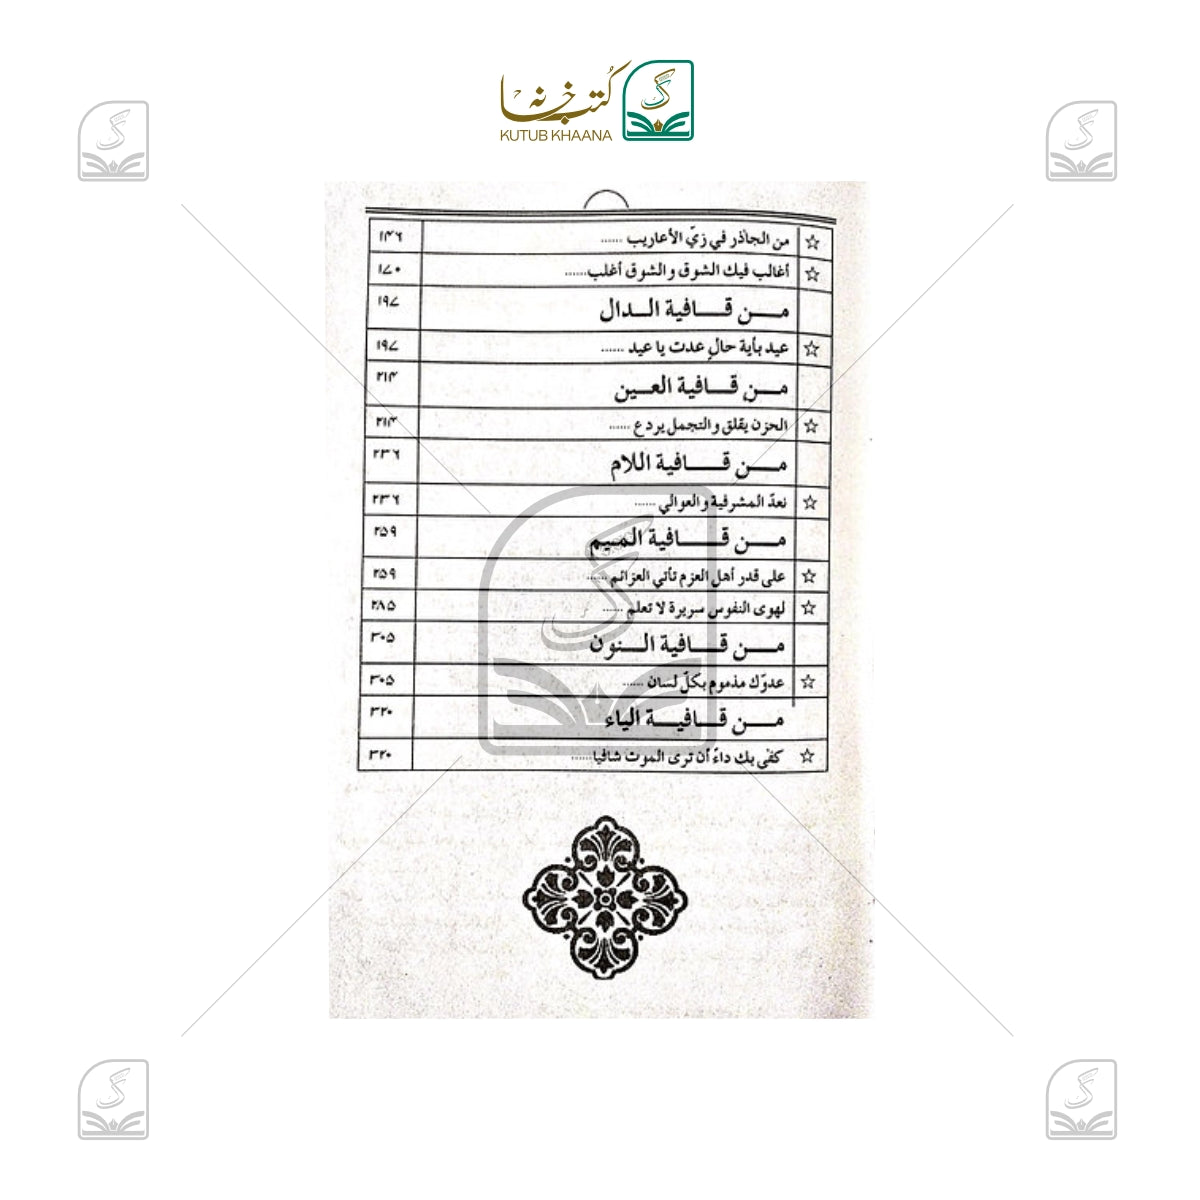 كُتب خانہ
KUTUB KHAANA
☆ من الجآذر في زيّ الأعاريب ...... ۱۴۶
☆ أغالب فيك الشوق والشوق أغلب ...... ۱۷۰
مـــن قـــافية الـــدال ۱۹۷
☆ عيد بأية حالٍ عدت يا عيد ...... ۱۹۷
مـــن قـــافية العـــين ۲۱۴
☆ الحزن يقلق والتجمل يردع ...... ۲۱۴
مـــن قـــافية اللام ۲۳۶
☆ نعدّ المشرفية والعوالي ...... ۲۳۶
مـــن قـــافية الميم ۲۵۹
☆ على قدر أهل العزم تأتي العزائم ...... ۲۵۹
☆ لهوى النفوس سريرة لا تعلم ...... ۲۸۵
مـــن قـــافية الـــنون ۳۰۵
☆ عدوّك مذموم بكلّ لسان ...... ۳۰۵
مـــن قـــافيـــة الياء ۳۲۰
☆ كفى بك داءً أن ترى الموت شافيا ...... ۳۲۰